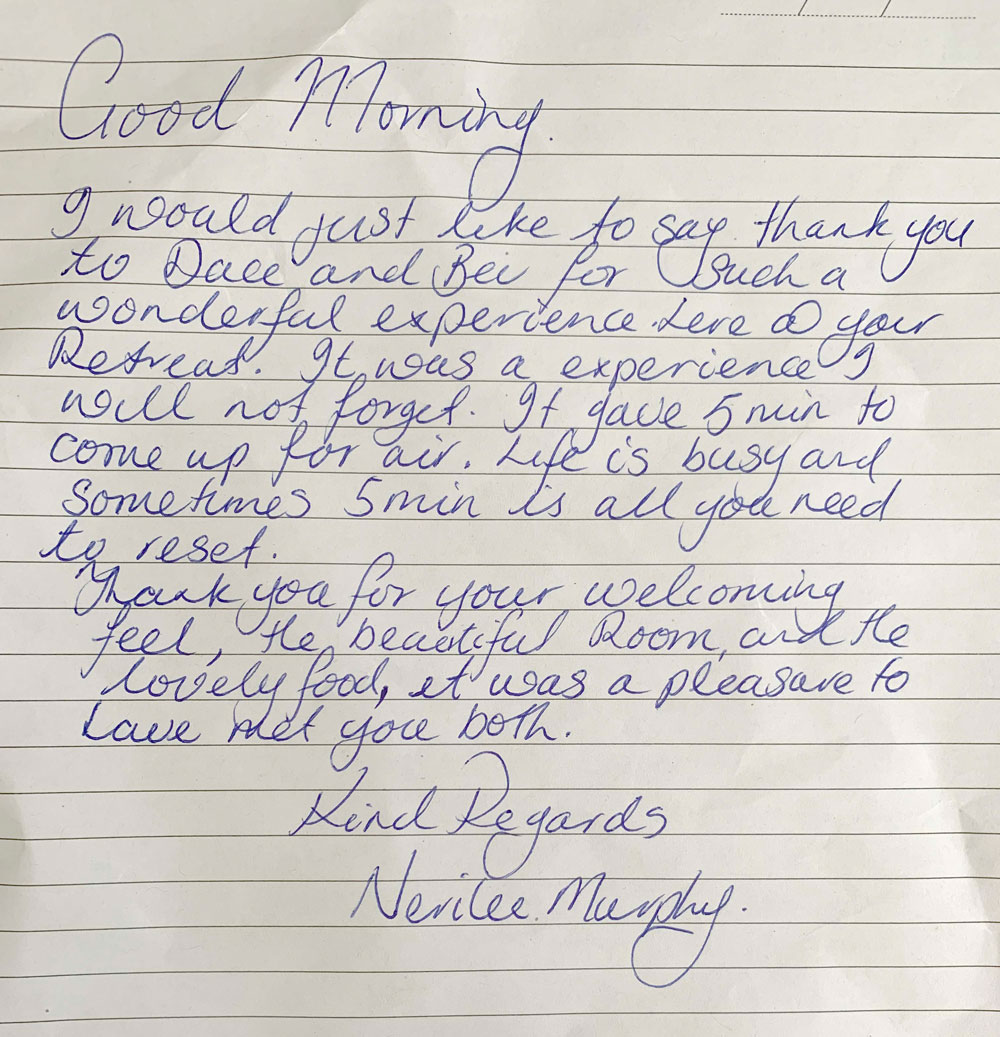 Good Morning.
I would just like to say thank you
to Dave and Bev for such a
wonderful experience here @ your
Retreat. It was a experience I
will not forget. It gave 5 min to
come up for air. Life is busy and
Sometimes 5 min is all you need
to reset.
Thank you for your welcoming
feel, the beautiful Room, and the
lovely food, it was a pleasure to
have met you both.
Kind Regards
Nerilee Murphy.